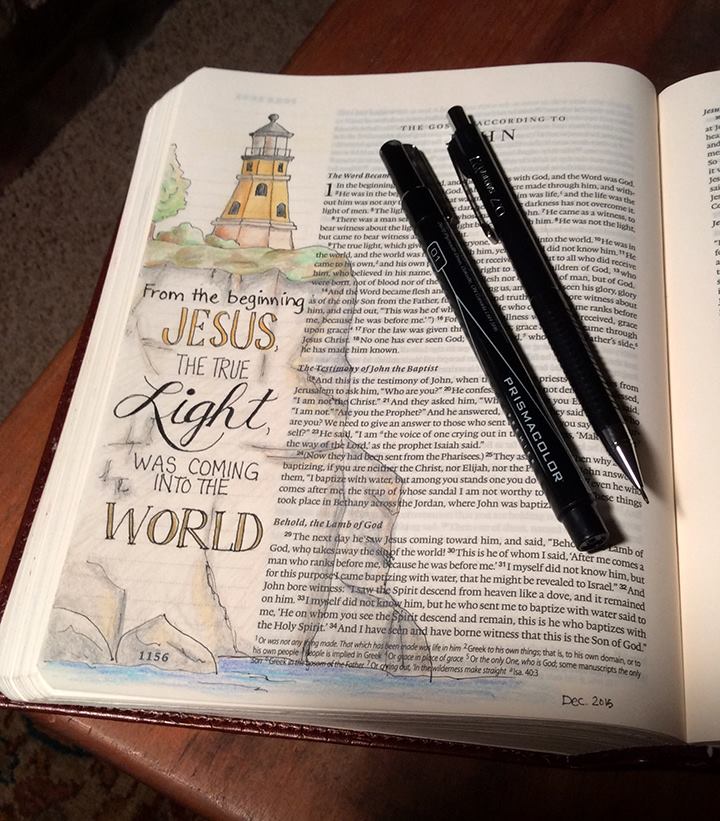 THE GOS ACCORDING TO
HN
The Word Becam
1 In the beginning and with God, and the Word was God.
² He was in the be re made through him, and with-
out him was not any him was life, ⁵ and the life was the
light of men. ⁵ The ligh e darkness has not overcome it.
⁶ There was a man s John. ⁷ He came as a witness, to
bear witness about the ligh He was not the light,
but came to bear witness a
⁹ The true light, which give eryone, into the world. ¹⁰ He was in
did not know him. ¹¹ He
came to his own, ⁶ and his own p to all who did receive
him, who believed in his name, right to children of God, ¹³ who
were born, not of blood nor of th of man, but of God.
¹⁴ And the Word became flesh and ng us, an en his glory, glory
as of the only Son from the Father, f d truth re witness about
him, and cried out, "This was he of wh me ranks before
me, because he was before me.'") ¹⁶ received, grace
upon grace. ¹⁷ For the law was given thr grace came through
Jesus Christ. ¹⁸ No one has ever seen God; who ather's side, ⁶
he has made him known.
From the beginning
JESUS,
THE TRUE
Light,
WAS COMING
INTO THE
WORLD
The Testimony of John the Baptist
¹⁹ And this is the testimony of John, when priests from
Jerusalem to ask him, "Who are you?" ²⁰ He confes essed,
"I am not the Christ." ²¹ And they asked him, "Wh
"I am not." "Are you the Prophet?" And he answered, said
are you? We need to give an answer to those who sent you say
self?" ²³ He said, "I am "the voice of one crying out in Mak
the way of the Lord,' as the prophet Isaiah said."
²⁴ (Now they had been sent from the Pharisees.) ²⁵ They as hen why
baptizing, if you are neither the Christ, nor Elijah, nor the P hn answe
them, "I baptize with water, but among you stands one you do even he who
comes after me, the strap of whose sandal I am not worthy to hese things
took place in Bethany across the Jordan, where John was baptiz
Behold, the Lamb of God
²⁹ The next day he saw Jesus coming toward him, and said, "Beho Lamb of
God, who takes away the sin of the world! ³⁰ This is he of whom I said, 'After me comes a
man who ranks before me, because he was before me.' ³¹ I myself did not know him, but
for this purpose I came baptizing with water, that he might be revealed to Israel." ³² And
John bore witness: "I saw the Spirit descend from heaven like a dove, and it remained
on him. ³³ I myself did not know him, but he who sent me to baptize with water said to
me, 'He on whom you see the Spirit descend and remain, this is he who baptizes with
the Holy Spirit.' ³⁴ And I have seen and have borne witness that this is the Son of God."
¹ Or was not any thing made. That which has been made was life in him ² Greek to his own things; that is, to his own domain, or to
his own people ³ people is implied in Greek ⁴ Or grace in place of grace ⁵ Or the only One, who is God; some manuscripts the only
Son ⁶ Greek in the bosom of the Father ⁷ Or crying out, 'In the wilderness make straight ⁸ Isa. 40:3
1156
Dec. 2015
01
PRISMACOLOR
0.7